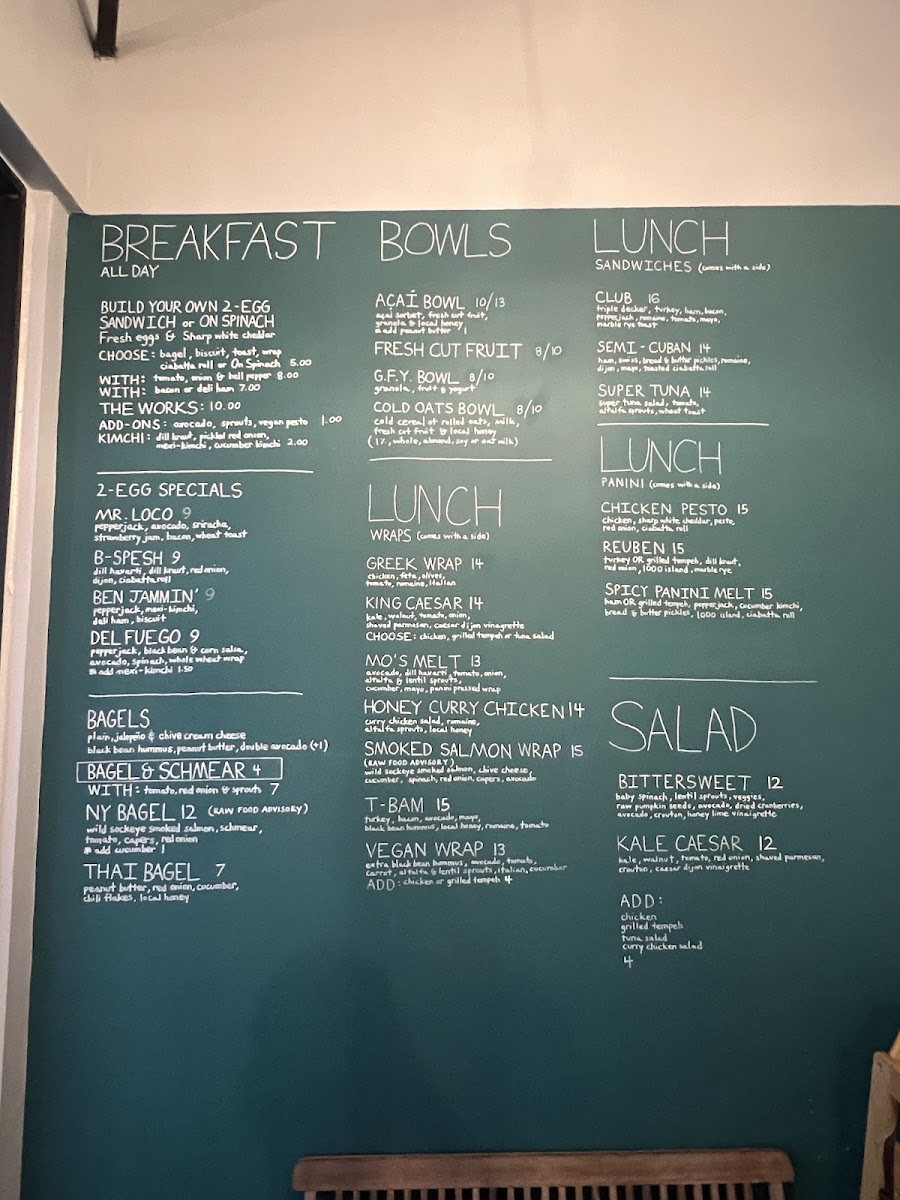 BREAKFAST
ALL DAY
BUILD YOUR OWN 2-EGG
SANDWICH or ON SPINACH
Fresh eggs & Sharp white cheddar
CHOOSE: bagel, biscuit, toast, wrap
ciabatta roll or On Spinach 5.00
WITH: tomato, onion & bell pepper 8.00
WITH: bacon or deli ham 7.00
THE WORKS: 10.00
ADD-ONS: avocado, sprouts, vegan pesto 1.00
KIMCHI: dill kraut, pickled red onion,
mexi-kimchi, cucumber kimchi 2.00
2-EGG SPECIALS
MR. LOCO 9
pepperjack, avocado, sriracha,
strawberry jam, bacon, wheat toast
B-SPESH 9
dill havarti, dill kraut, red onion,
dijon, ciabatta roll
BEN JAMMIN' 9
pepperjack, mexi-kimchi,
deli ham, biscuit
DEL FUEGO 9
pepperjack, black bean & corn salsa,
avocado, spinach, whole wheat wrap
add mexi-kimchi 1.50
BAGELS
plain, jalapeño & chive cream cheese
black bean hummus, peanut butter, double avocado (+1)
BAGEL & SCHMEAR 4
WITH: tomato, red onion & sprouts 7
NY BAGEL 12 (RAW FOOD ADVISORY)
wild sockeye smoked salmon, schmear,
tomato, capers, red onion
add cucumber 1
THAI BAGEL 7
peanut butter, red onion, cucumber,
chili flakes, local honey
BOWLS
AÇAÍ BOWL 10/13
açaí sorbet, fresh cut fruit,
granola & local honey
add peanut butter 1
FRESH CUT FRUIT 8/10
G.F.Y. BOWL 8/10
granola, fruit & yogurt
COLD OATS BOWL 8/10
cold cereal of rolled oats, milk,
fresh cut fruit & local honey
(1%, whole, almond, soy or oat milk)
LUNCH
WRAPS (comes with a side)
GREEK WRAP 14
chicken, feta, olives,
tomato, romaine, italian
KING CAESAR 14
kale, walnut, tomato, onion,
shaved parmesan, caesar dijon vinaigrette
CHOOSE: chicken, grilled tempeh or tuna salad
MO'S MELT 13
avocado, dill havarti, tomato, onion,
alfalfa & lentil sprouts,
cucumber, mayo, panini pressed wrap
HONEY CURRY CHICKEN 14
curry chicken salad, romaine,
alfalfa sprouts, local honey
SMOKED SALMON WRAP 15
(RAW FOOD ADVISORY)
wild sockeye smoked salmon, chive cheese,
cucumber, spinach, red onion, capers, avocado
T-BAM 15
turkey, bacon, avocado, mayo,
black bean hummus, local honey, romaine, tomato
VEGAN WRAP 13
extra black bean hummus, avocado, tomato,
carrot, alfalfa & lentil sprouts, italian, cucumber
ADD: chicken or grilled tempeh 4
LUNCH
SANDWICHES (comes with a side)
CLUB 16
triple decker, turkey, ham, bacon,
pepperjack, romaine, tomato, mayo,
marble rye toast
SEMI-CUBAN 14
ham, swiss, bread & butter pickles, romaine,
dijon, mayo, toasted ciabatta roll
SUPER TUNA 14
super tuna salad, tomato,
alfalfa sprouts, wheat toast
LUNCH
PANINI (comes with a side)
CHICKEN PESTO 15
chicken, sharp white cheddar, pesto,
red onion, ciabatta roll
REUBEN 15
turkey OR grilled tempeh, dill kraut,
red onion, 1000 island, marble rye
SPICY PANINI MELT 15
ham OR grilled tempeh, pepperjack, cucumber kimchi,
bread & butter pickles, 1000 island, ciabatta roll
SALAD
BITTERSWEET 12
baby spinach, lentil sprouts, veggies,
raw pumpkin seeds, avocado, dried cranberries,
avocado, crouton, honey lime vinaigrette
KALE CAESAR 12
kale, walnut, tomato, red onion, shaved parmesan,
crouton, caesar dijon vinaigrette
ADD:
chicken
grilled tempeh
tuna salad
curry chicken salad
4